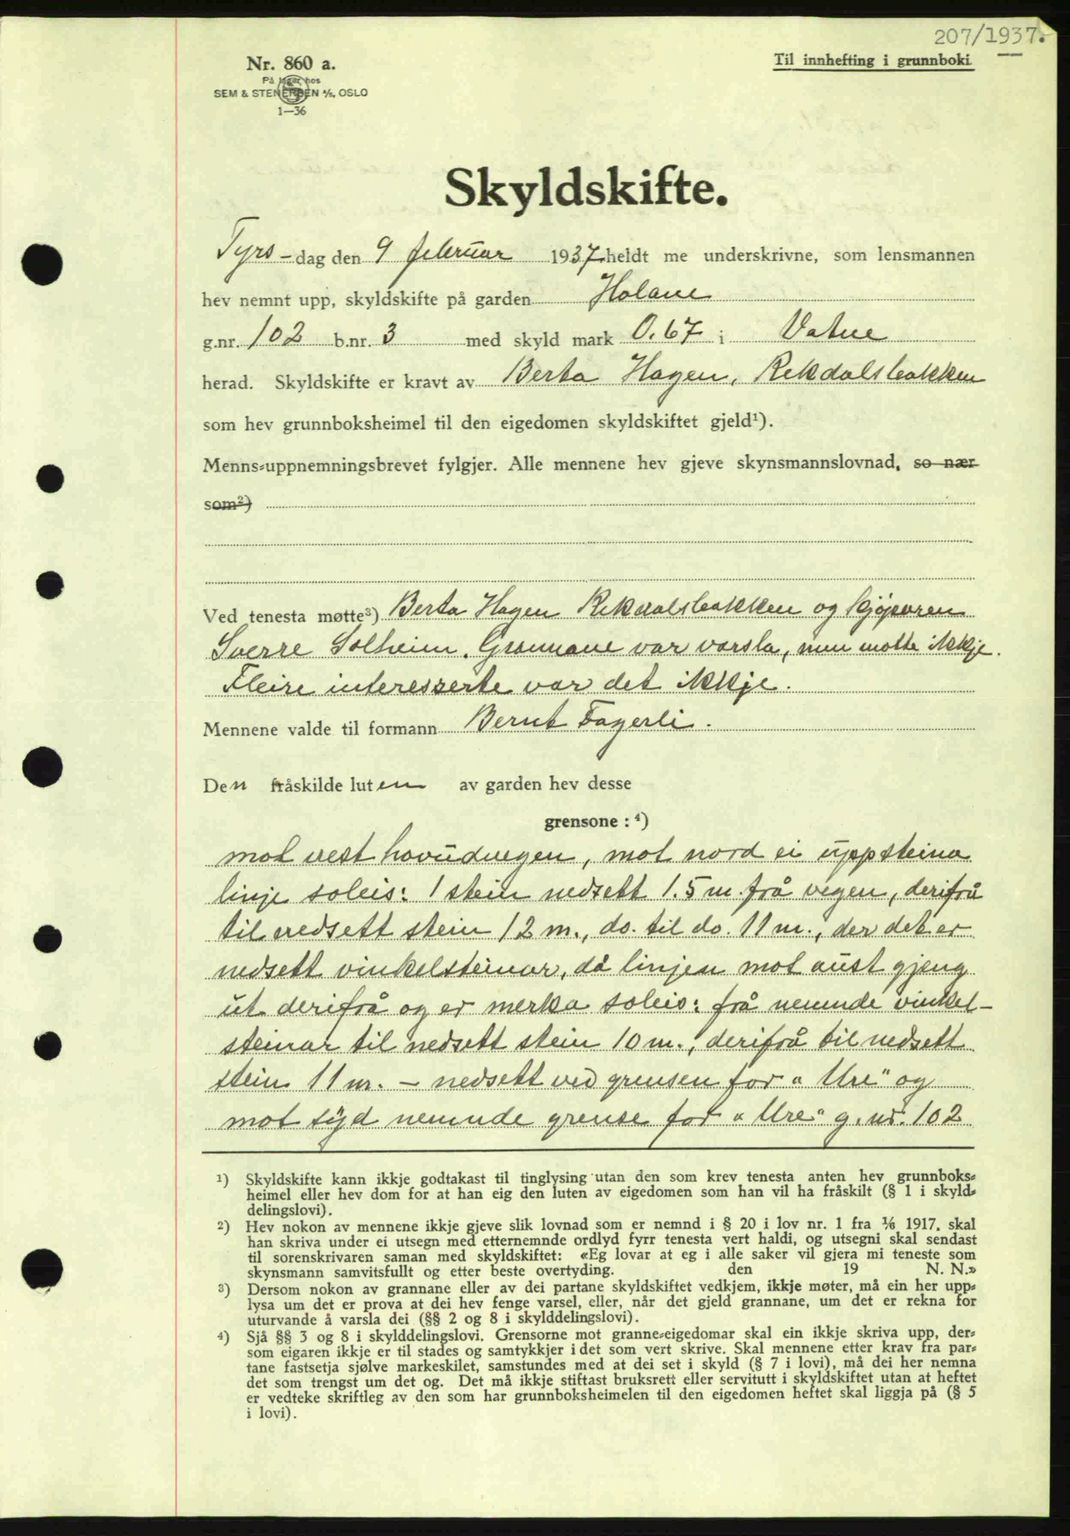 207/1937.
Nr. 860 a.
Til innhefting i grunnboki
På lager hos
SEM & STENERSEN A/S, OSLO
1—36
Skyldskifte.
Tyrs-dag den 9 februar 1937 heldt me underskrivne, som lensmannen
hev nemnt upp, skyldskifte på garden Holane
g.nr. 102 b.nr. 3 med skyld mark 0.67 i Vatne
herad. Skyldskifte er kravt av Berta Hagen, Rekdalsbakken
som hev grunnboksheimel til den eigedomen skyldskiftet gjeld¹).
Menns-uppnemningsbrevet fylgjer. Alle mennene hev gjeve skynsmannslovnad, so nær
som²)
Ved tenesta møtte³) Berta Hagen Rekdalsbakken og kjøparen
Sverre Solheim. Grannane var varsla, men møtte ikkje.
Fleire interesserte var det ikkje.
Mennene valde til formann Bernt Fagerli.
Den fråskilde luten av garden hev desse
grensone : ⁴)
mot vest hovudvegen, mot nord ei uppsteina
linje soleis: 1 stein nedsett 1.5 m. frå vegen, derifrå
til nedsett stein 12 m., do. til do. 11 m., der det er
nedsett vinkelsteinar, då linjen mot aust gjeng
ut derifrå og er merka soleis: frå nemnde vinkel-
steinar til nedsett stein 10 m., derifrå til nedsett
stein 11 m. — nedsett ved grensen for "Ure" og
mot syd nemnde grense for "Ure" g.nr. 102
¹) Skyldskifte kann ikkje godtakast til tinglysing utan den som krev tenesta anten hev grunnboks-
heimel eller hev dom for at han eig den luten av eigedomen som han vil ha fråskilt (§ 1 i skyld-
delingslovi).
²) Hev nokon av mennene ikkje gjeve slik lovnad som er nemnd i § 20 i lov nr. 1 fra 1/6 1917, skal
han skriva under ei utsegn med etternemnde ordlyd fyrr tenesta vert haldi, og utsegni skal sendast
til sorenskrivaren saman med skyldskiftet: «Eg lovar at eg i alle saker vil gjera mi teneste som
skynsmann samvitsfullt og etter beste overtyding. den 19 N. N.»
³) Dersom nokon av grannane eller av dei partane skyldskiftet vedkjem, ikkje møter, må ein her upp-
lysa um det er prova at dei hev fenge varsel, eller, når det gjeld grannane, um det er rekna for
uturvande å varsla dei (§§ 2 og 8 i skylddelingslovi).
⁴) Sjå §§ 3 og 8 i skylddelingslovi. Grensorne mot granne-eigedomar skal ein ikkje skriva upp, der-
som eigaren ikkje er til stades og samtykkjer i det som vert skrive. Skal mennene etter krav fra par-
tane fastsetja sjølve markeskilet, samstundes med at dei set i skyld (§ 7 i lovi), må dei her nemna
det som trengst um det og. Det må ikkje stiftast bruksrett eller servitutt i skyldskiftet utan at heftet
er vedteke skriftleg av den som har grunnboksheimelen til den eigedomen heftet skal liggja på (§ 5
i lovi).